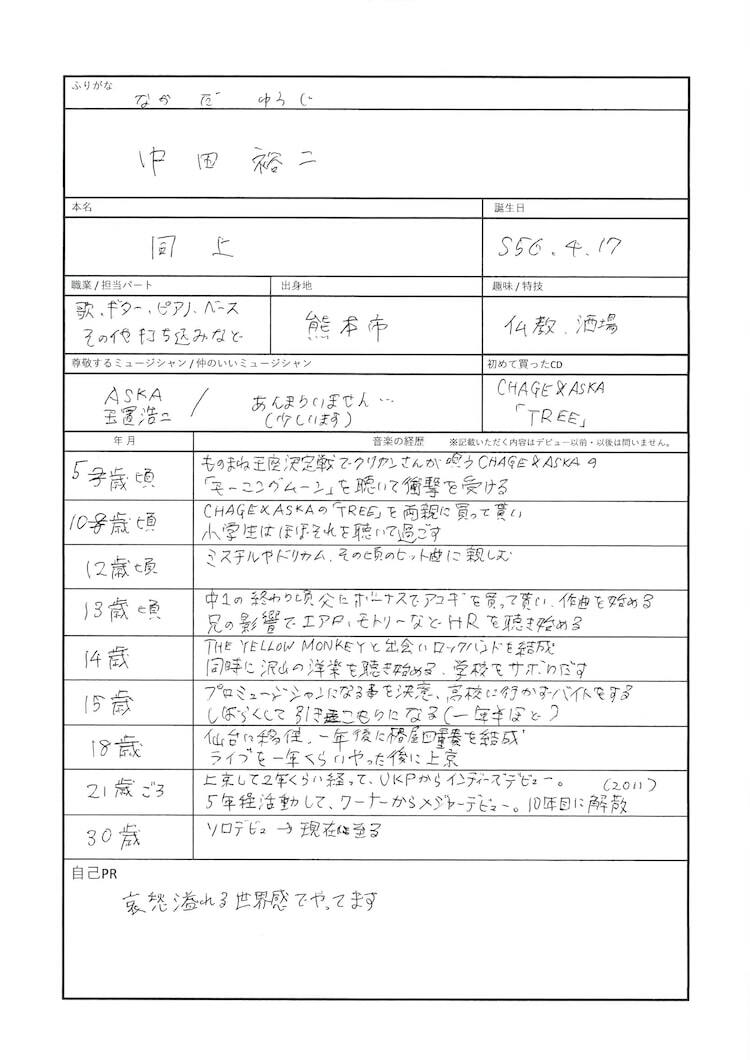 ふりがな
なかだ ゆうじ
中田裕二
本名
誕生日
同上
S56.4.17
職業/担当パート
出身地
趣味/特技
歌、ギター、ピアノ、ベース
その他打ち込みなど
熊本市
仏教、酒場
尊敬するミュージシャン/仲のいいミュージシャン
初めて買ったCD
ASKA
玉置浩二
/
あんまりいません…
(少しいます)
CHAGE&ASKA
「TREE」
年月
音楽の経歴 ※記載いただく内容はデビュー以前・以後は問いません。
5歳頃
ものまね王座決定戦でクリカンさんが唄うCHAGE&ASKAの
「モーニングムーン」を聴いて衝撃を受ける
10歳頃
CHAGE&ASKAの「TREE」を両親に買って貰い
小学生はほぼそれを聴いて過ごす
12歳頃
ミスチルやドリカム、その頃のヒット曲に親しむ
13歳頃
中1の終わり頃父にボーナスでアコギを買って貰い、作曲を始める
兄の影響でエアロ、モトリーなどHRを聴き始める
14歳
THE YELLOW MONKEYと出会いロックバンドを結成
同時に沢山の洋楽を聴き始める、学校をサボりだす
15歳
プロミュージシャンになる事を決意、高校に行かずバイトをする
しばらくして引きこもりになる(一年半ほど)
18歳
仙台に移住。一年後に椿屋四重奏を結成
ライブを一年くらいやった後に上京
21歳ごろ
上京して2年くらい経って、UKPからインディーズデビュー。
(2011)
5年経活動して、ワーナーからメジャーデビュー。10年目に解散
30歳
ソロデビュー→現在に至る
自己PR
哀愁溢れる世界感でやってます